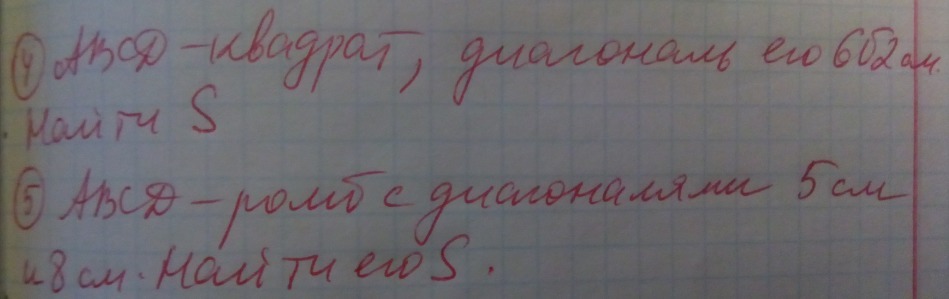 ④ ABCD – квадрат, диагональ его 6√2 см.
Найти S
⑤ ABCD – ромб с диагоналями 5 см
и 8 см. Найти его S.